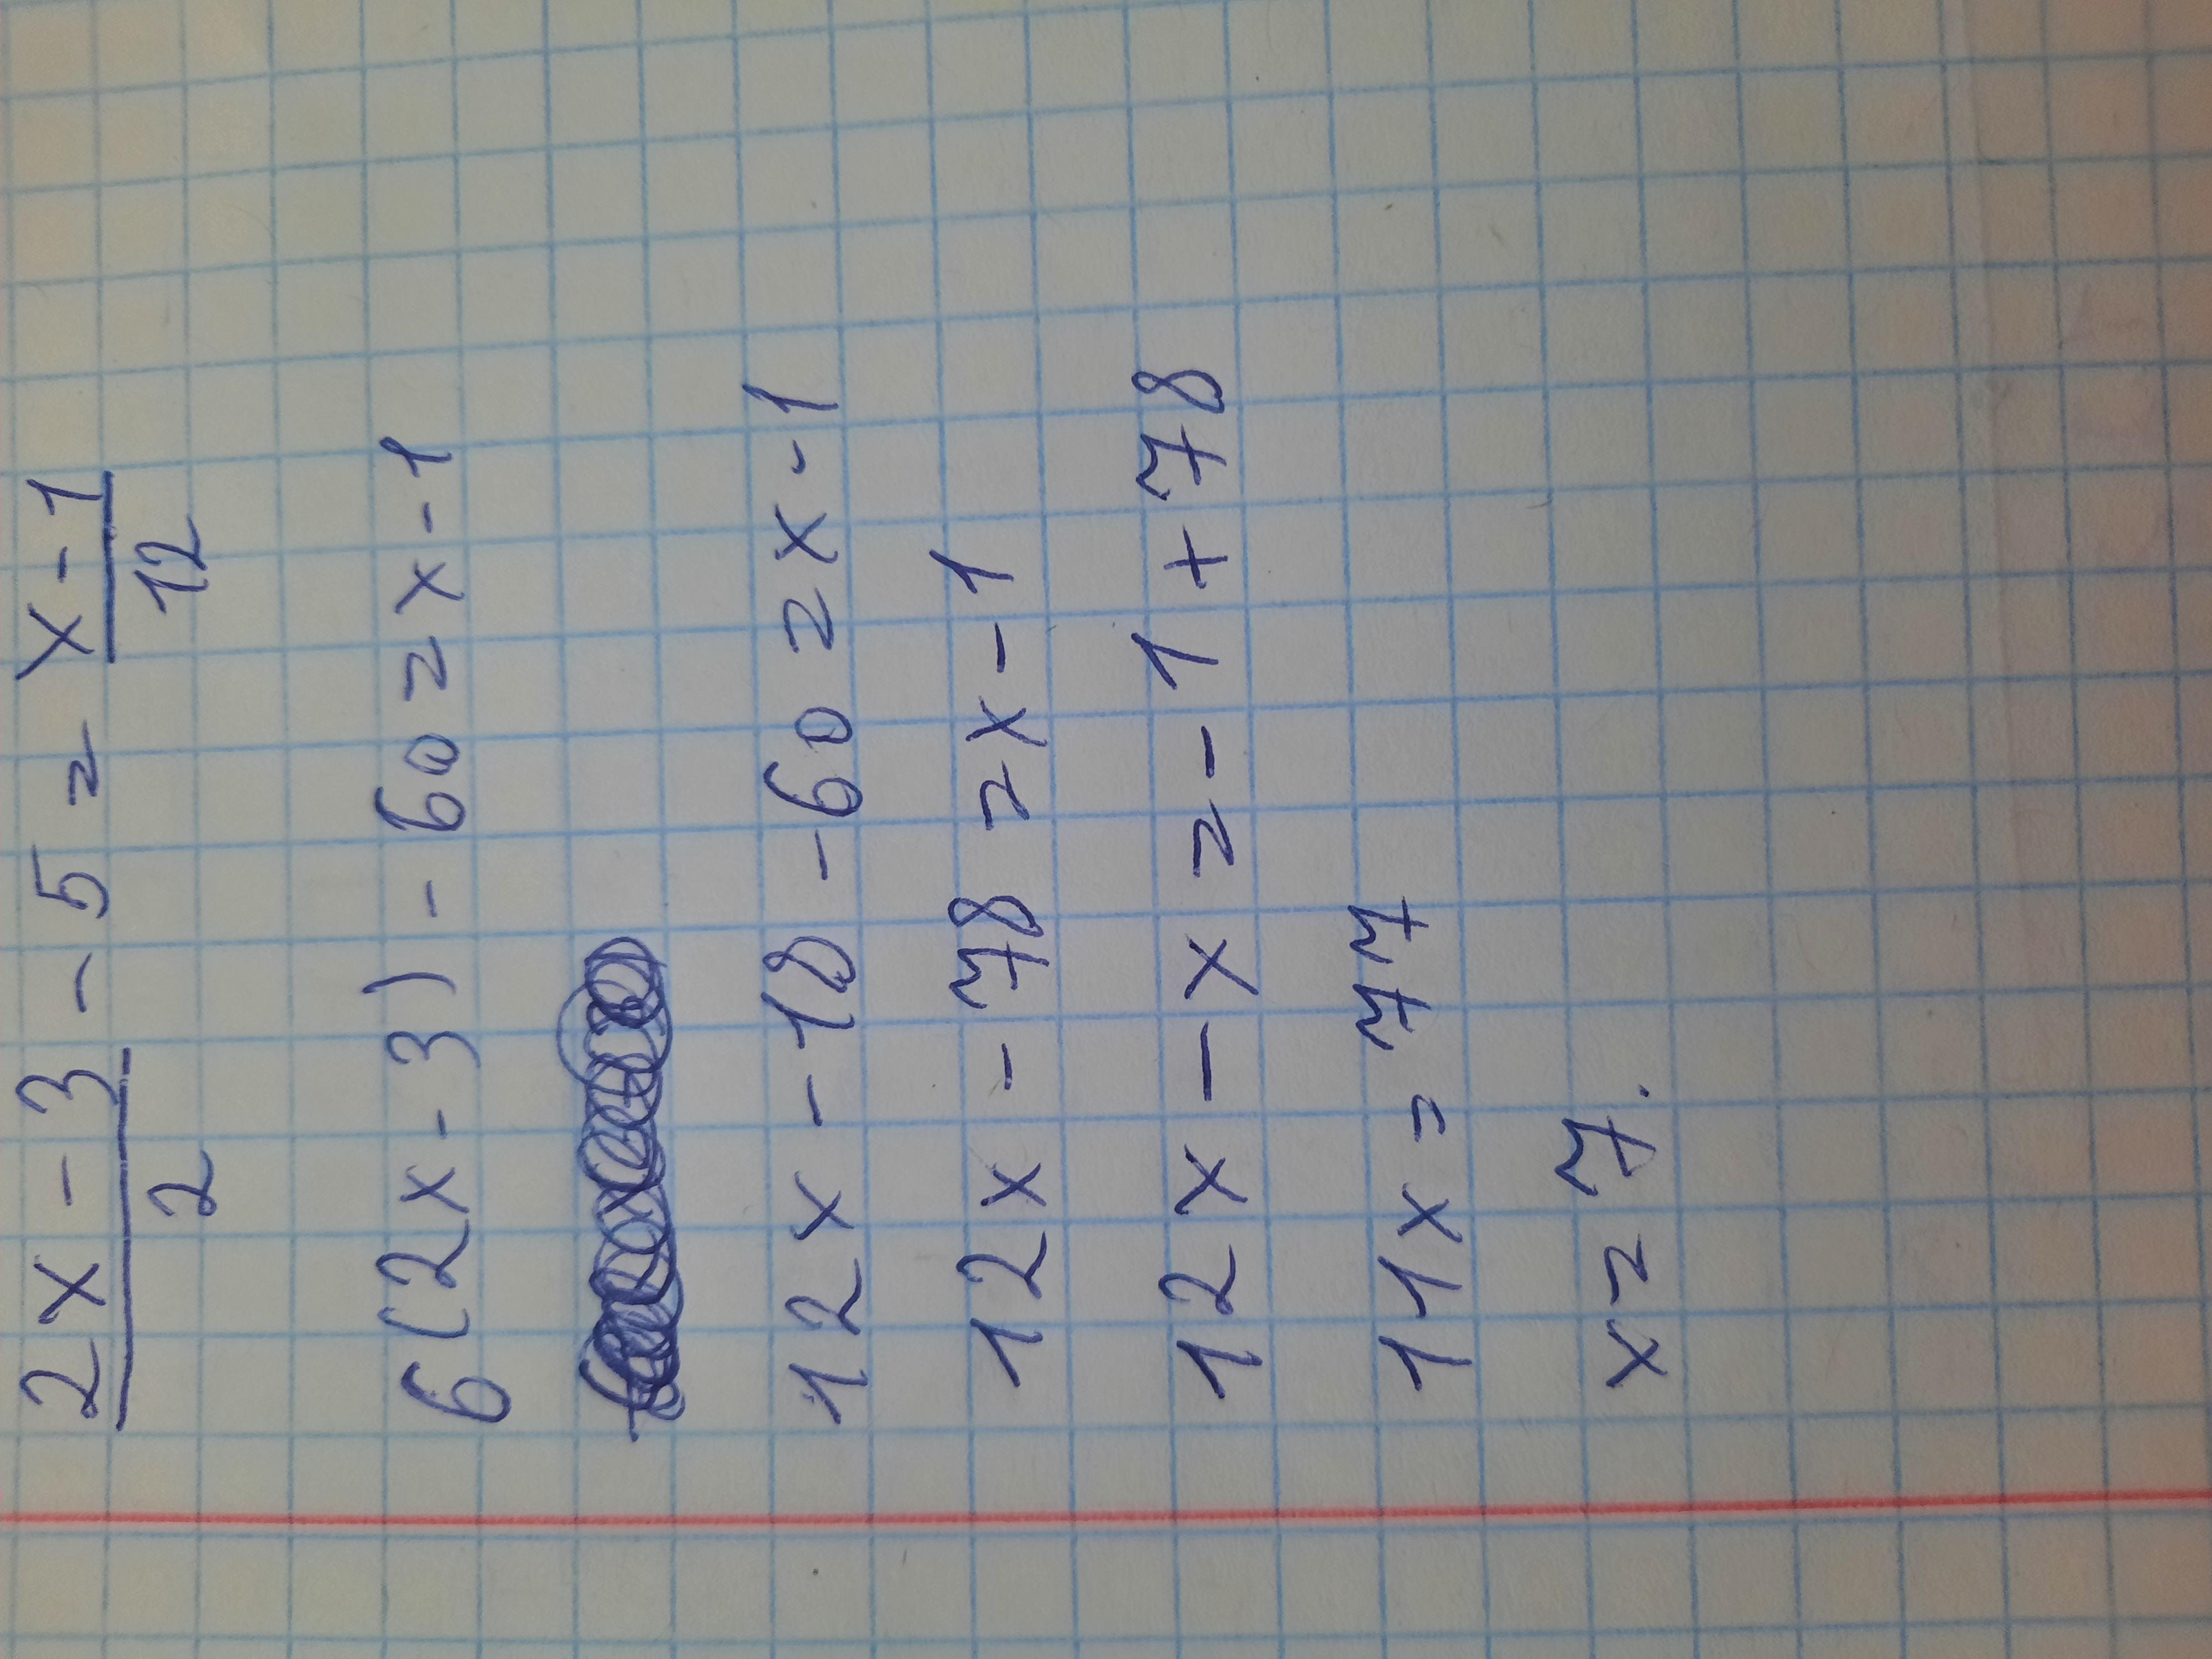 2x-3/2 - 5 = x-1/12
6(2x-3)-60=x-1
12x-18-60=x-1
12x-78=x-1
12x-x=-1+78
11x=77
x=7.